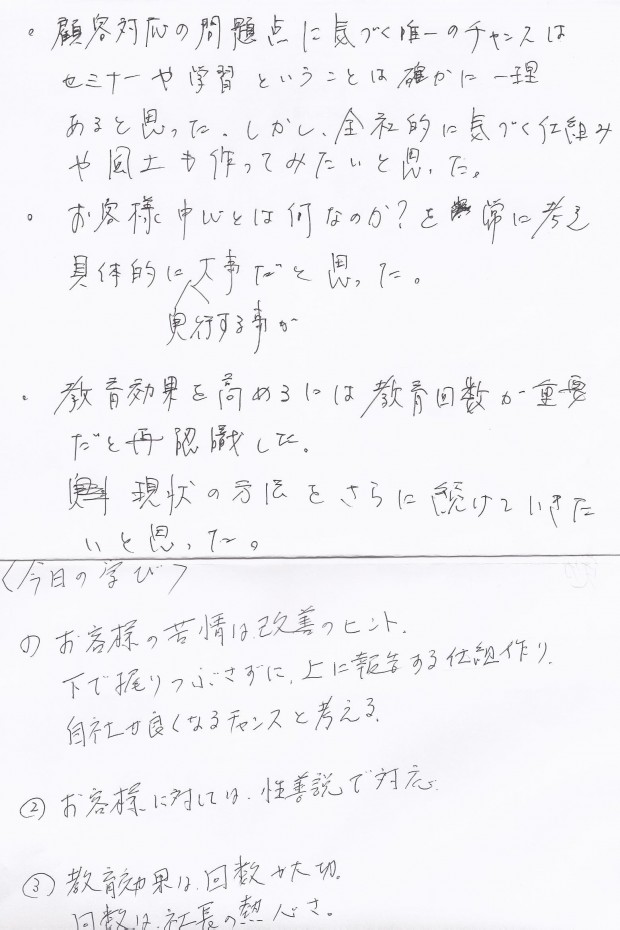 ・顧客対応の問題点に気づく唯一のチャンスは
セミナーや学習ということは確かに一理
あると思った。しかし、全社的に気づく仕組み
や風土も作ってみたいと思った。
・お客様中心とは何なのか?を常に考え
具体的に大事だと思った。
実行する事が
・教育効果を高めるには教育回数が重要
だと再認識した。
現状の方法をさらに続けていきた
いと思った。
〈今日の学び〉
① お客様の苦情は、改善のヒント。
下で握りつぶさずに、上に報告する仕組作り。
自社が良くなるチャンスと考える。
② お客様に対しては、性善説で対応。
③ 教育効果は、回数が大切。
回数は、社長の熱心さ。